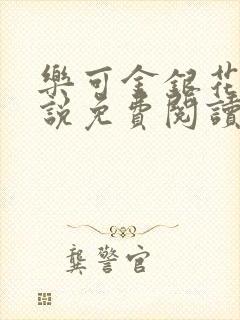 樂可金銀花
說免費閱讀
龔警官